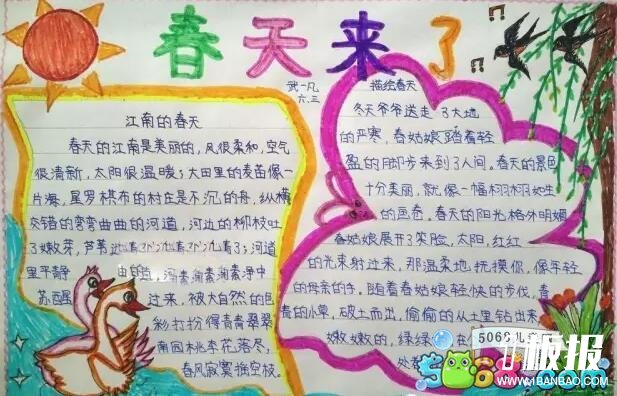 春天来了
武一凡
六.三
江南的春天
春天的江南是美丽的,风很柔和,空气
很清新,太阳很温暖;大田里的麦苗像一
片海,星罗棋布的村庄是不沉的舟,纵横
交错的弯弯曲曲的河道,河边的柳枝吐
了嫩芽,芦苇
河道
里平静
苏醒
过来,被大自然的色
彩打扮得青青翠翠
南园桃李花落尽,
春风寂寞摇空枝。
描绘春天
冬天爷爷送走了大地
的严寒,春姑娘踏着轻
盈的脚步来到了人间。春天的景色
十分美丽,就像一幅栩栩如生
的画卷。春天的阳光格外明媚
春姑娘展开了笑脸,太阳,红红
的光束射过来,那温柔地抚摸你,像年轻
的母亲的手,随着春姑娘轻快的步伐,青
青的小草,破土而出,偷偷的从土里钻出来
嫩嫩的,绿绿
5068儿童
板报
www.1BANBAO.com